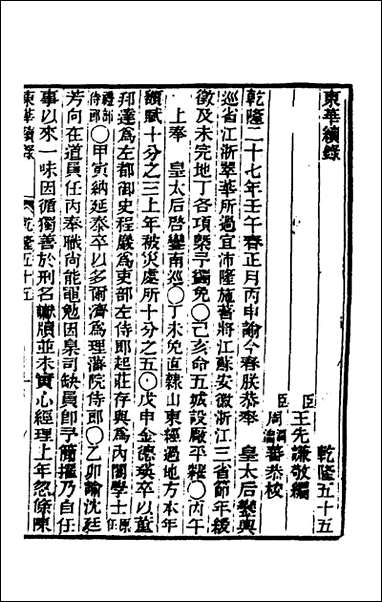 東華續錄
乾隆五十五
臣王先謙敬編
臣周潤蕃恭校
乾隆二十七年壬午春正月丙申諭今春朕恭奉　皇太后鑾輿
巡省江浙翠華所過宜沛隆施著將江蘇安徽浙江三省節年緩
徵及未完地丁各項槩予蠲免○己亥命五城設廠平糶○丙午
上奉　皇太后啓鑾南巡○丁未免直隸山東經過地方本年
額賦十分之三上年被災處所十分之五○戊申金德瑛卒以董
邦達爲左都御史程巖爲吏部左侍郎起莊存與爲內閣學士原
禮部
侍郎○甲寅納延泰卒以多爾濟爲理藩院侍郎○乙卯諭沈廷
芳向在道員任內奉職尚能黽勉因臬司缺員卽予簡擢乃自任
事以來一味因循獨善於刑名讞牘並未實心經理上年忽條陳
東華續錄　乾隆五十五